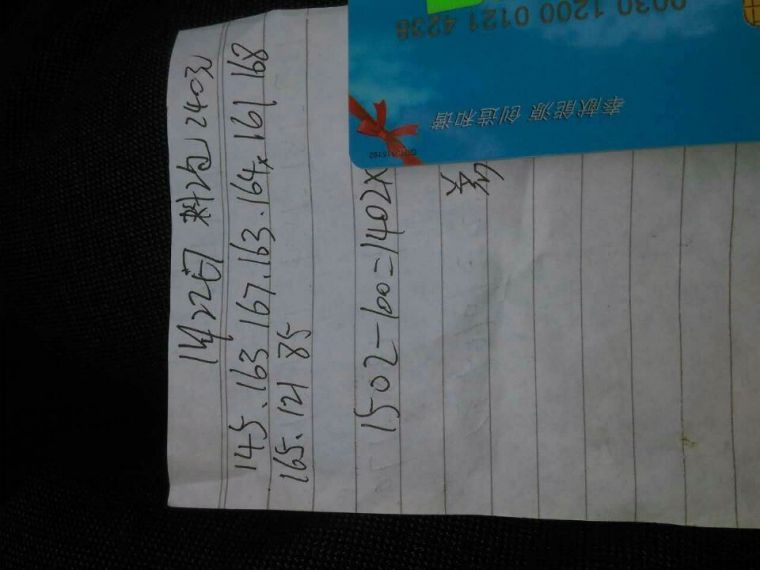 14车22日 料包 240元
145.163 167.163.164x 161 168
165.121 85
1502-100=1402x
奉献能源 创造和谐
0030 1200 0121 4238